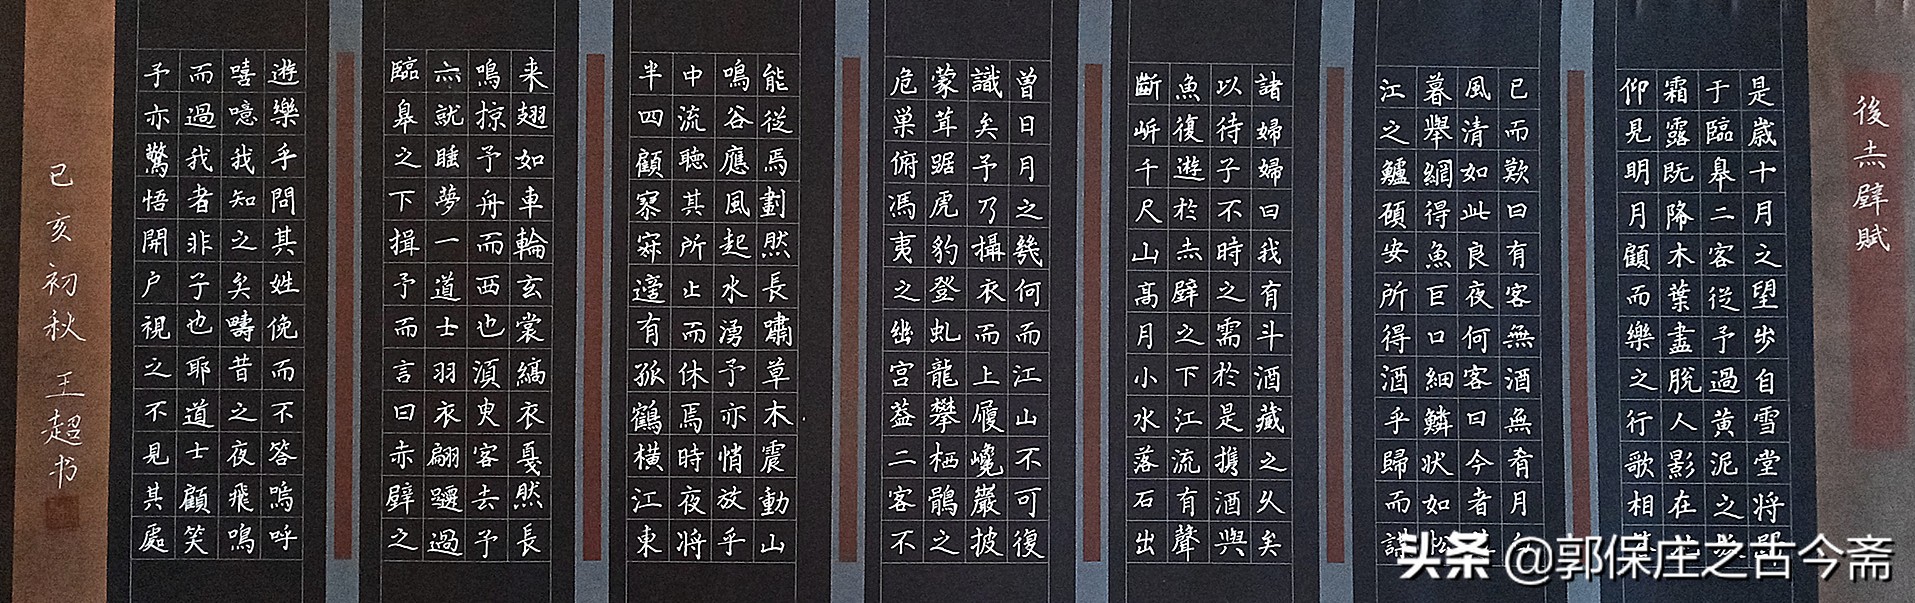 後赤壁賦
是歲十月之望步自雪堂將
于臨皋二客從予過黃泥之
霜露既降木葉盡脫人影在
仰見明月顧而樂之行歌相
已而歎曰有客無酒無肴月
風清如此良夜何客曰今者
暮舉網得魚巨口細鱗狀如松
江之鱸顧安所得酒乎歸而謀
諸婦婦曰我有斗酒藏之久矣
以待子不時之需於是携酒與
魚復遊於赤壁之下江流有聲
斷岸千尺山高月小水落石出
曾日月之幾何而江山不可復
識矣予乃攝衣而上履巉巖披
蒙茸踞虎豹登虬龍攀栖鶻之
危巢俯馮夷之幽宮蓋二客不
能從焉劃然長嘯草木震動山
鳴谷應風起水湧予亦悄放乎
中流聽其所止而休焉時夜將
半四顧寥寂適有孤鶴橫江東
来翅如車輪玄裳縞衣戛然長
鳴掠予舟而西也須臾客去予
亦就睡夢一道士羽衣翩躚過
臨皋之下揖予而言曰赤壁之
遊樂乎問其姓俛而不答嗚呼
嘻噫我知之矣疇昔之夜飛鳴
而過我者非子也耶道士顧笑
予亦驚悟開户視之不見其處
己亥初秋 王超书
头条 @郭保庄之古今斋